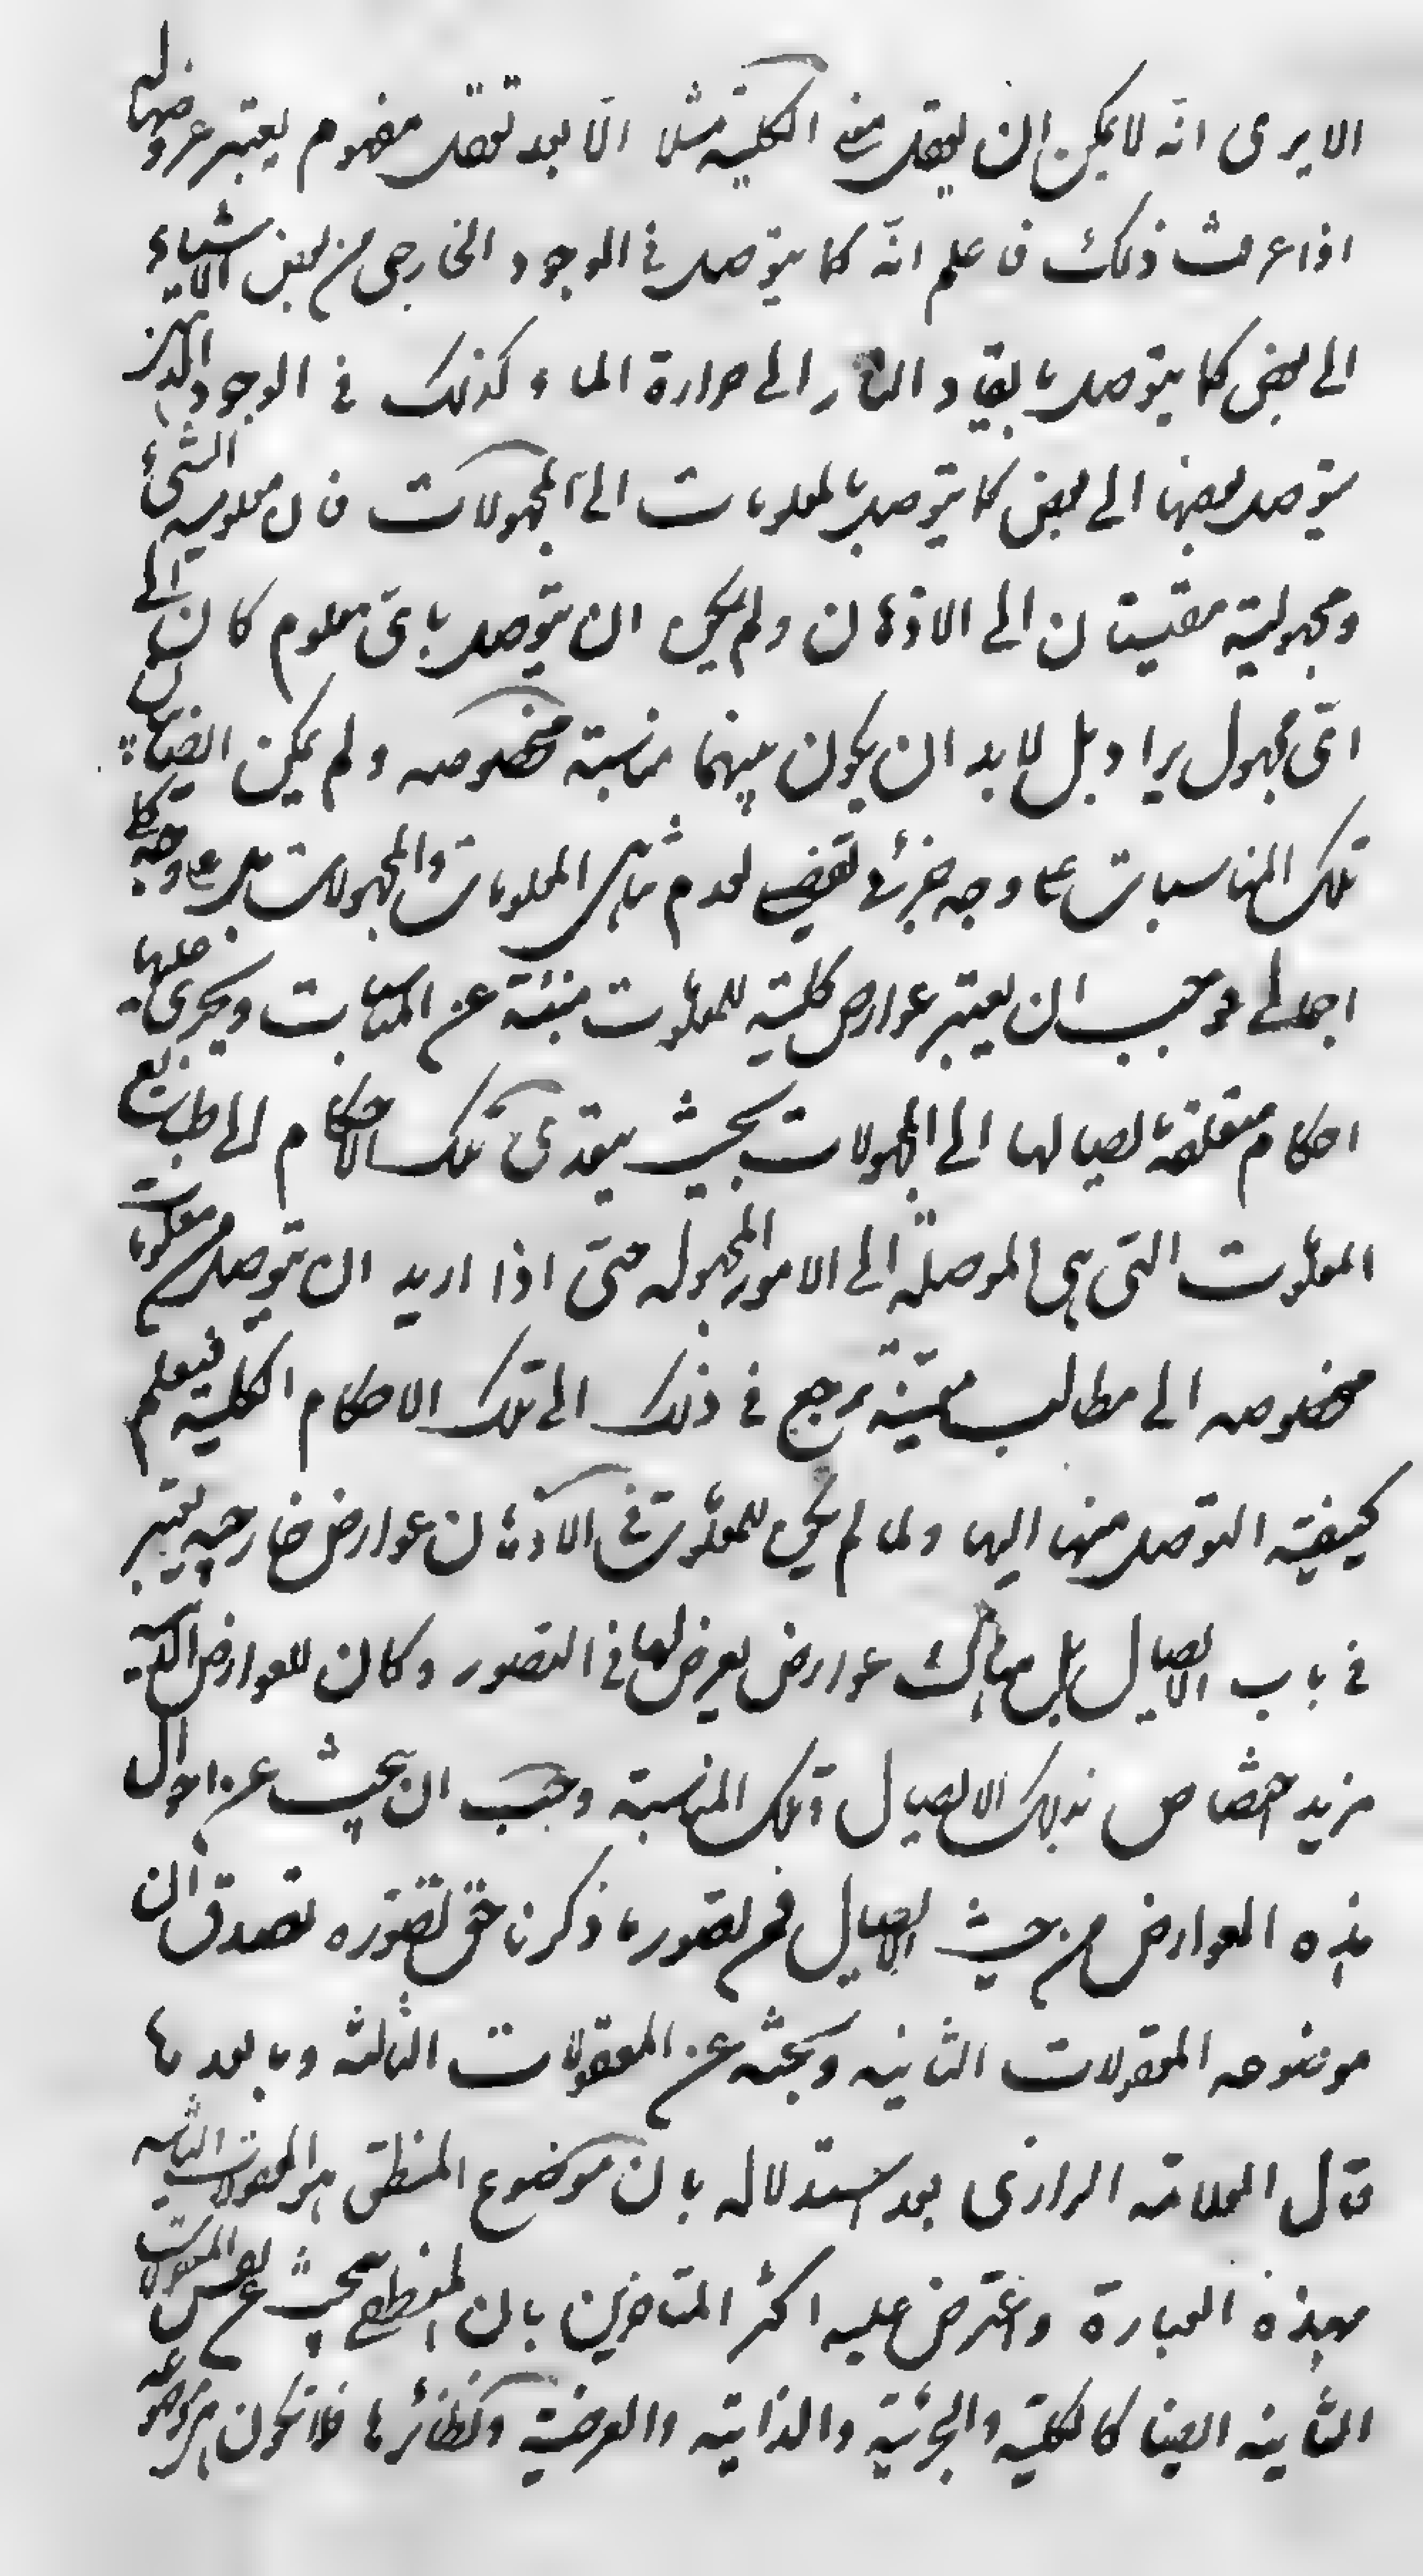 الا يرى انّه لا يمكن ان يعقل معنى الكلية مثلا الّا بعد تعقّل مفهوم يعتبر عروضها له
اذا عرفت ذلك فاعلم انّه كما يتوصل في الوجود الخارجى من بعض الاشياء
الى بعض كما يتوصل بايقاد النار الى حرارة الماء كذلك في الوجود الذهنى
يتوصل بعضها الى بعض كما يتوصل بالمعلومات الى المجهولات فان معلومية الشئ
ومجهولية مقيستان الى الاذهان ولم يكن ان يتوصل باىّ معلوم كان الى
اىّ مجهول يراد بل لا بد ان يكون بينهما مناسبة مخصوصه ولم يمكن ايضا بيان
تلك المناسبات على وجه جزئى تفصيلى لعدم تناهى المعلومات والمجهولات بل على وجه كلى
اجمالى وجب ان يعتبر عوارض كلية للمعلومات منبئة عن المناسبات ويجرى عليها
احكام متعلقة بايصالها الى المجهولات بحيث يتعدى تلك الاحكام الى طبائع
المعلومات التى هى الموصلة الى الامور المجهوله حتى اذا اريد ان يتوصل من معلومات
مخصوصه الى مطالب معيّنة يرجع في ذلك الى تلك الاحكام الكلية فيعلم
كيفية التوصل منها اليها ولما لم يكن للمعلومات في الاذهان عوارض خارجيه يعتبر
في باب الايصال بل هناك عوارض يعرض لها في التصور وكان للعوارض الذهنية
مزيد اختصاص بذلك الايصال وتلك المناسبة وجب ان يبحث عن احوال
هذه العوارض من حيث الايصال فمن تصور ما ذكرنا حق تصوّره تصدق ان
موضوعه المعقولات الثانيه وبحثه عن المعقولات الثالثه وما بعدها
قال العلامة الرازى بعد استدلاله بان موضوع المنطق هو المعقولات الثانيه
بهذه العبارة واعترض عليه اكثر المتاخرين بان المنطقى يبحث عن نفس المعقولات
الثانيه ايضا كالكلية والجزئية والذاتيه والعرضية ونظائرها فلا تكون هى موضوعه